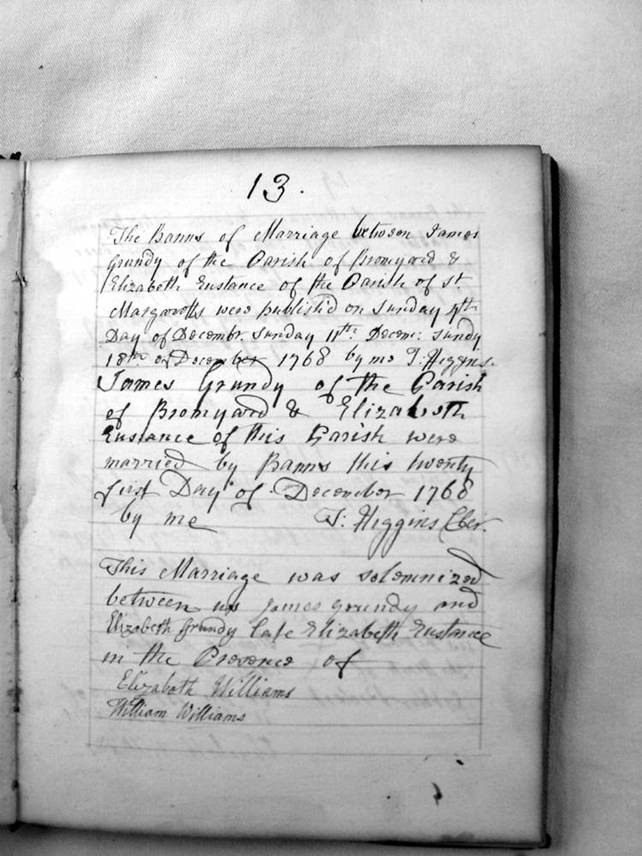 13.
The Banns of Marriage between James
Grundy of the Parish of Bromyard &
Elizabeth Eustance of the Parish of St.
Margaretts were publish'd on Sunday 4th
Day of Decembr. Sunday 11th. Decem: Sunday
18th of December 1768 by me T: Higgins.
James Grundy of the Parish
of Bromyard & Elizabeth
Eustance of this Parish were
married by Banns this twenty
first Day of December 1768
by me T: Higgins Cler.
This Marriage was solemnized
between us James Grundy and
Elizabeth Grundy late Elizabeth Eustance
in the Presence of
Elizabeth Williams
William Williams